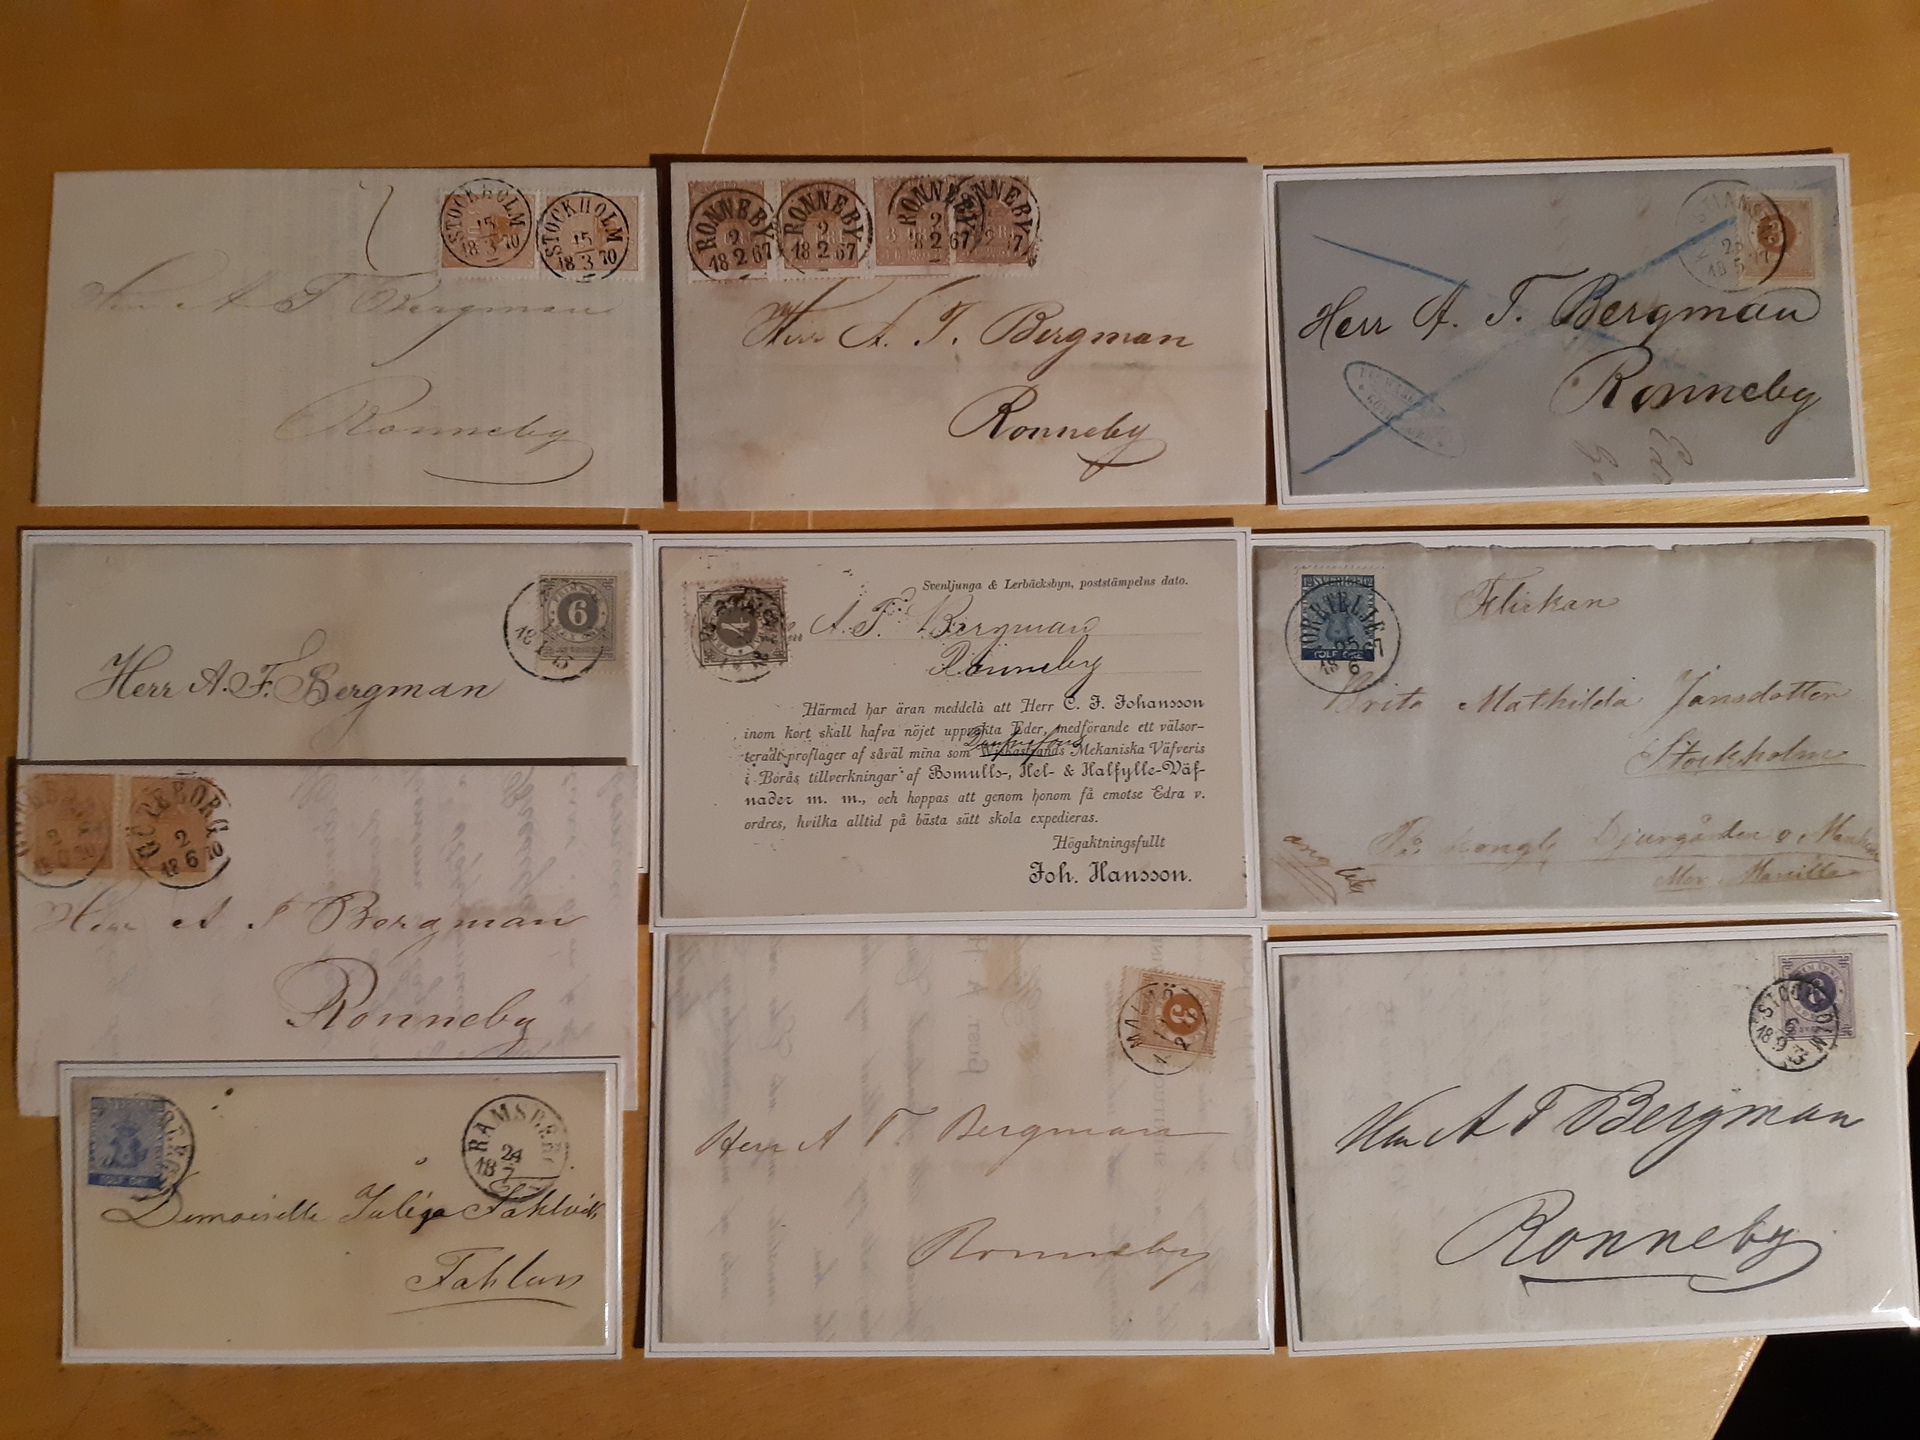 STOCKHOLM
15
18 3 70
STOCKHOLM
15
18 3 70
Herr A F Bergman
Ronneby
RONNEBY
2
18 2 67
RONNEBY
2
18 2 67
RONNEBY
2
18 2 67
RONNEBY
Herr A. F. Bergman
Ronneby
Herr A. F. Bergman
Ronneby
6
Herr A. F. Bergman
4
Svenljunga & Lerbäcksbyn, poststämpelns dato.
A. F. Bergman
Ronneby
Härmed har äran meddela att Herr C. F. Johansson
inom kort skall hafva nöjet uppvakta Eder, medförande ett välsor-
teradt proflager af såväl mina som Mekaniska Väfveris
i Borås tillverkningar af Bomulls-, Hel- & Halfylle-Väf-
nader m. m., och hoppas att genom honom få emotse Edra v.
ordres, hvilka alltid på bästa sätt skola expedieras.
Högaktningsfullt
Joh. Hansson.
SVERIGE
TOLF ÖRE
NORTELJE
Flickan
Brita Mathilda Jansdotter
Stockholm
På Kongl. Djurgården
Manilla
GÖTEBORG
2
18 6 70
Herr A F Bergman
Ronneby
TOLF ÖRE
RAMSBERG
24
18 7
Demoiselle
Fahlun
3
Herr A F Bergman
Ronneby
STOCKHOLM
6
Herr A F Bergman
Ronneby